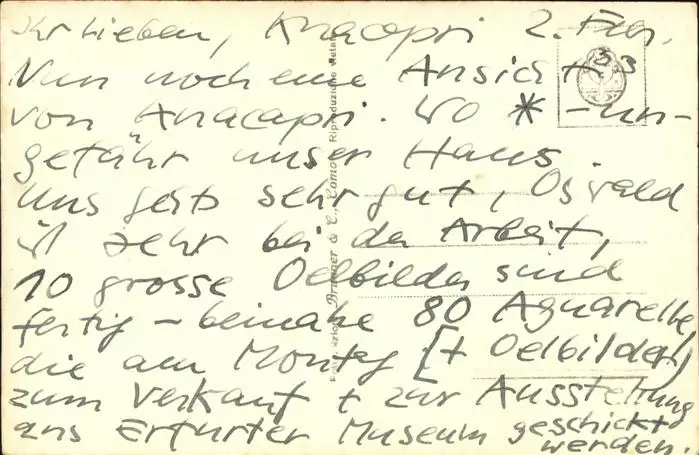 Ihr Lieben, Anacapri 2. Febr.
33
Nun noch eine Ansicht
von Anacapri. Wo * - un-
gefähr unser Haus
uns gehts sehr gut, Oswald
ist sehr bei der Arbeit,
10 grosse Oelbilder sind
fertig - beinahe 80 Aquarelle
die am Montag [+ Oelbilder]
zum Verkauf + zur Ausstellung
ans Erfurter Museum geschickt
werden.
Brunner & C., Como
Riproduzione vietata